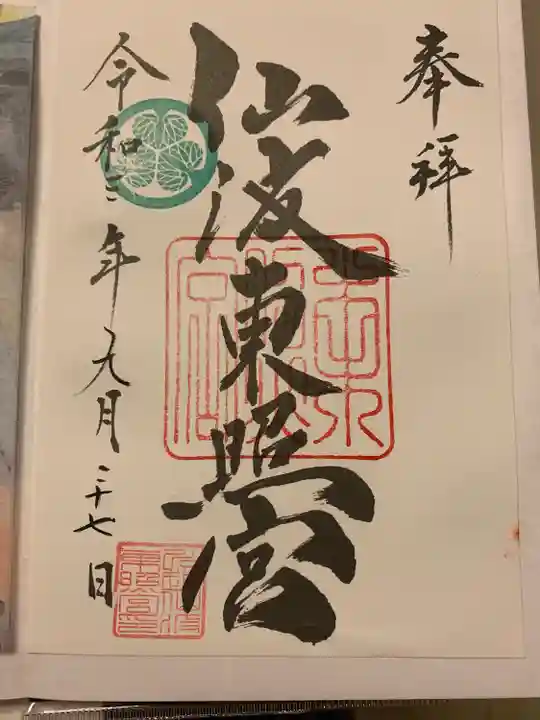 奉拝
仙波東照宮
令和三年九月二十七日